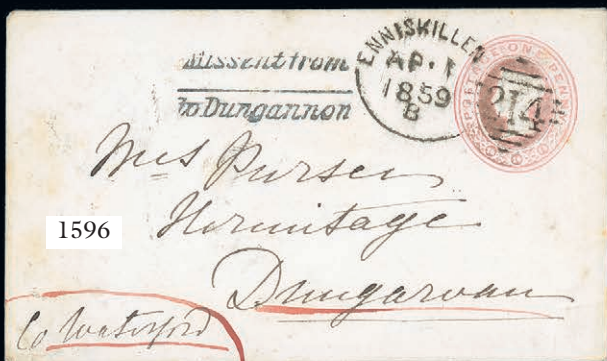 Missent from
to Dungannon
ENNISKILLEN
AP·1
1859
B
POSTAGE ONE PENNY
214
Mrs Purser
Hermitage
Dungarvan
Co Waterford
1596